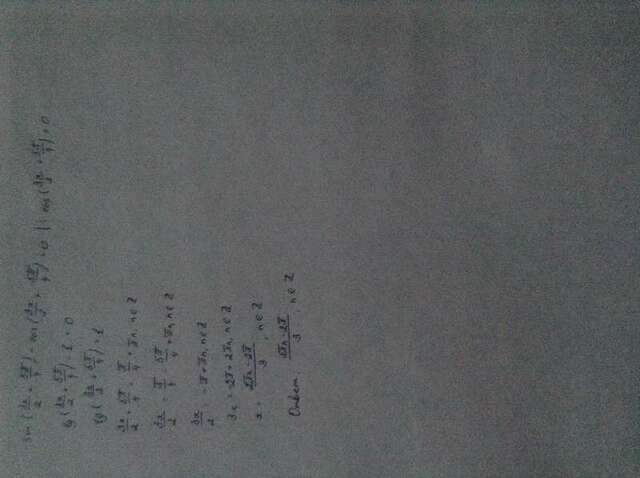 sin (3x/2 + 5π/4) - cos (3x/2 + 5π/4) = 0 | : cos (3x/2 + 5π/4) ≠ 0
tg (3x/2 + 5π/4) - 1 = 0
tg (3x/2 + 5π/4) = 1
3x/2 + 5π/4 = π/4 + πn, n ∈ Z
3x/2 = π/4 - 5π/4 + πn, n ∈ Z
3x/2 = -π + πn, n ∈ Z
3x = -2π + 2πn, n ∈ Z
x = (2πn - 2π)/3, n ∈ Z
Ответ: (2πn - 2π)/3, n ∈ Z